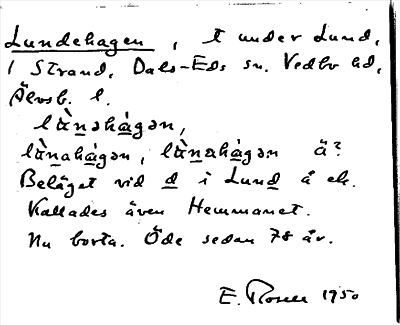 Lundehagen, t under Lund,
1 Strand, Dals-Eds sn. Vedbo hd,
Älvsb. l.
lὰnəhágən,
lὰnahágən, lὰnəhágən ä?
Beläget vid d i Lund å ek.
Kallades även Hemmanet.
Nu borta. Öde sedan 78 år.
E. Rosell 1950